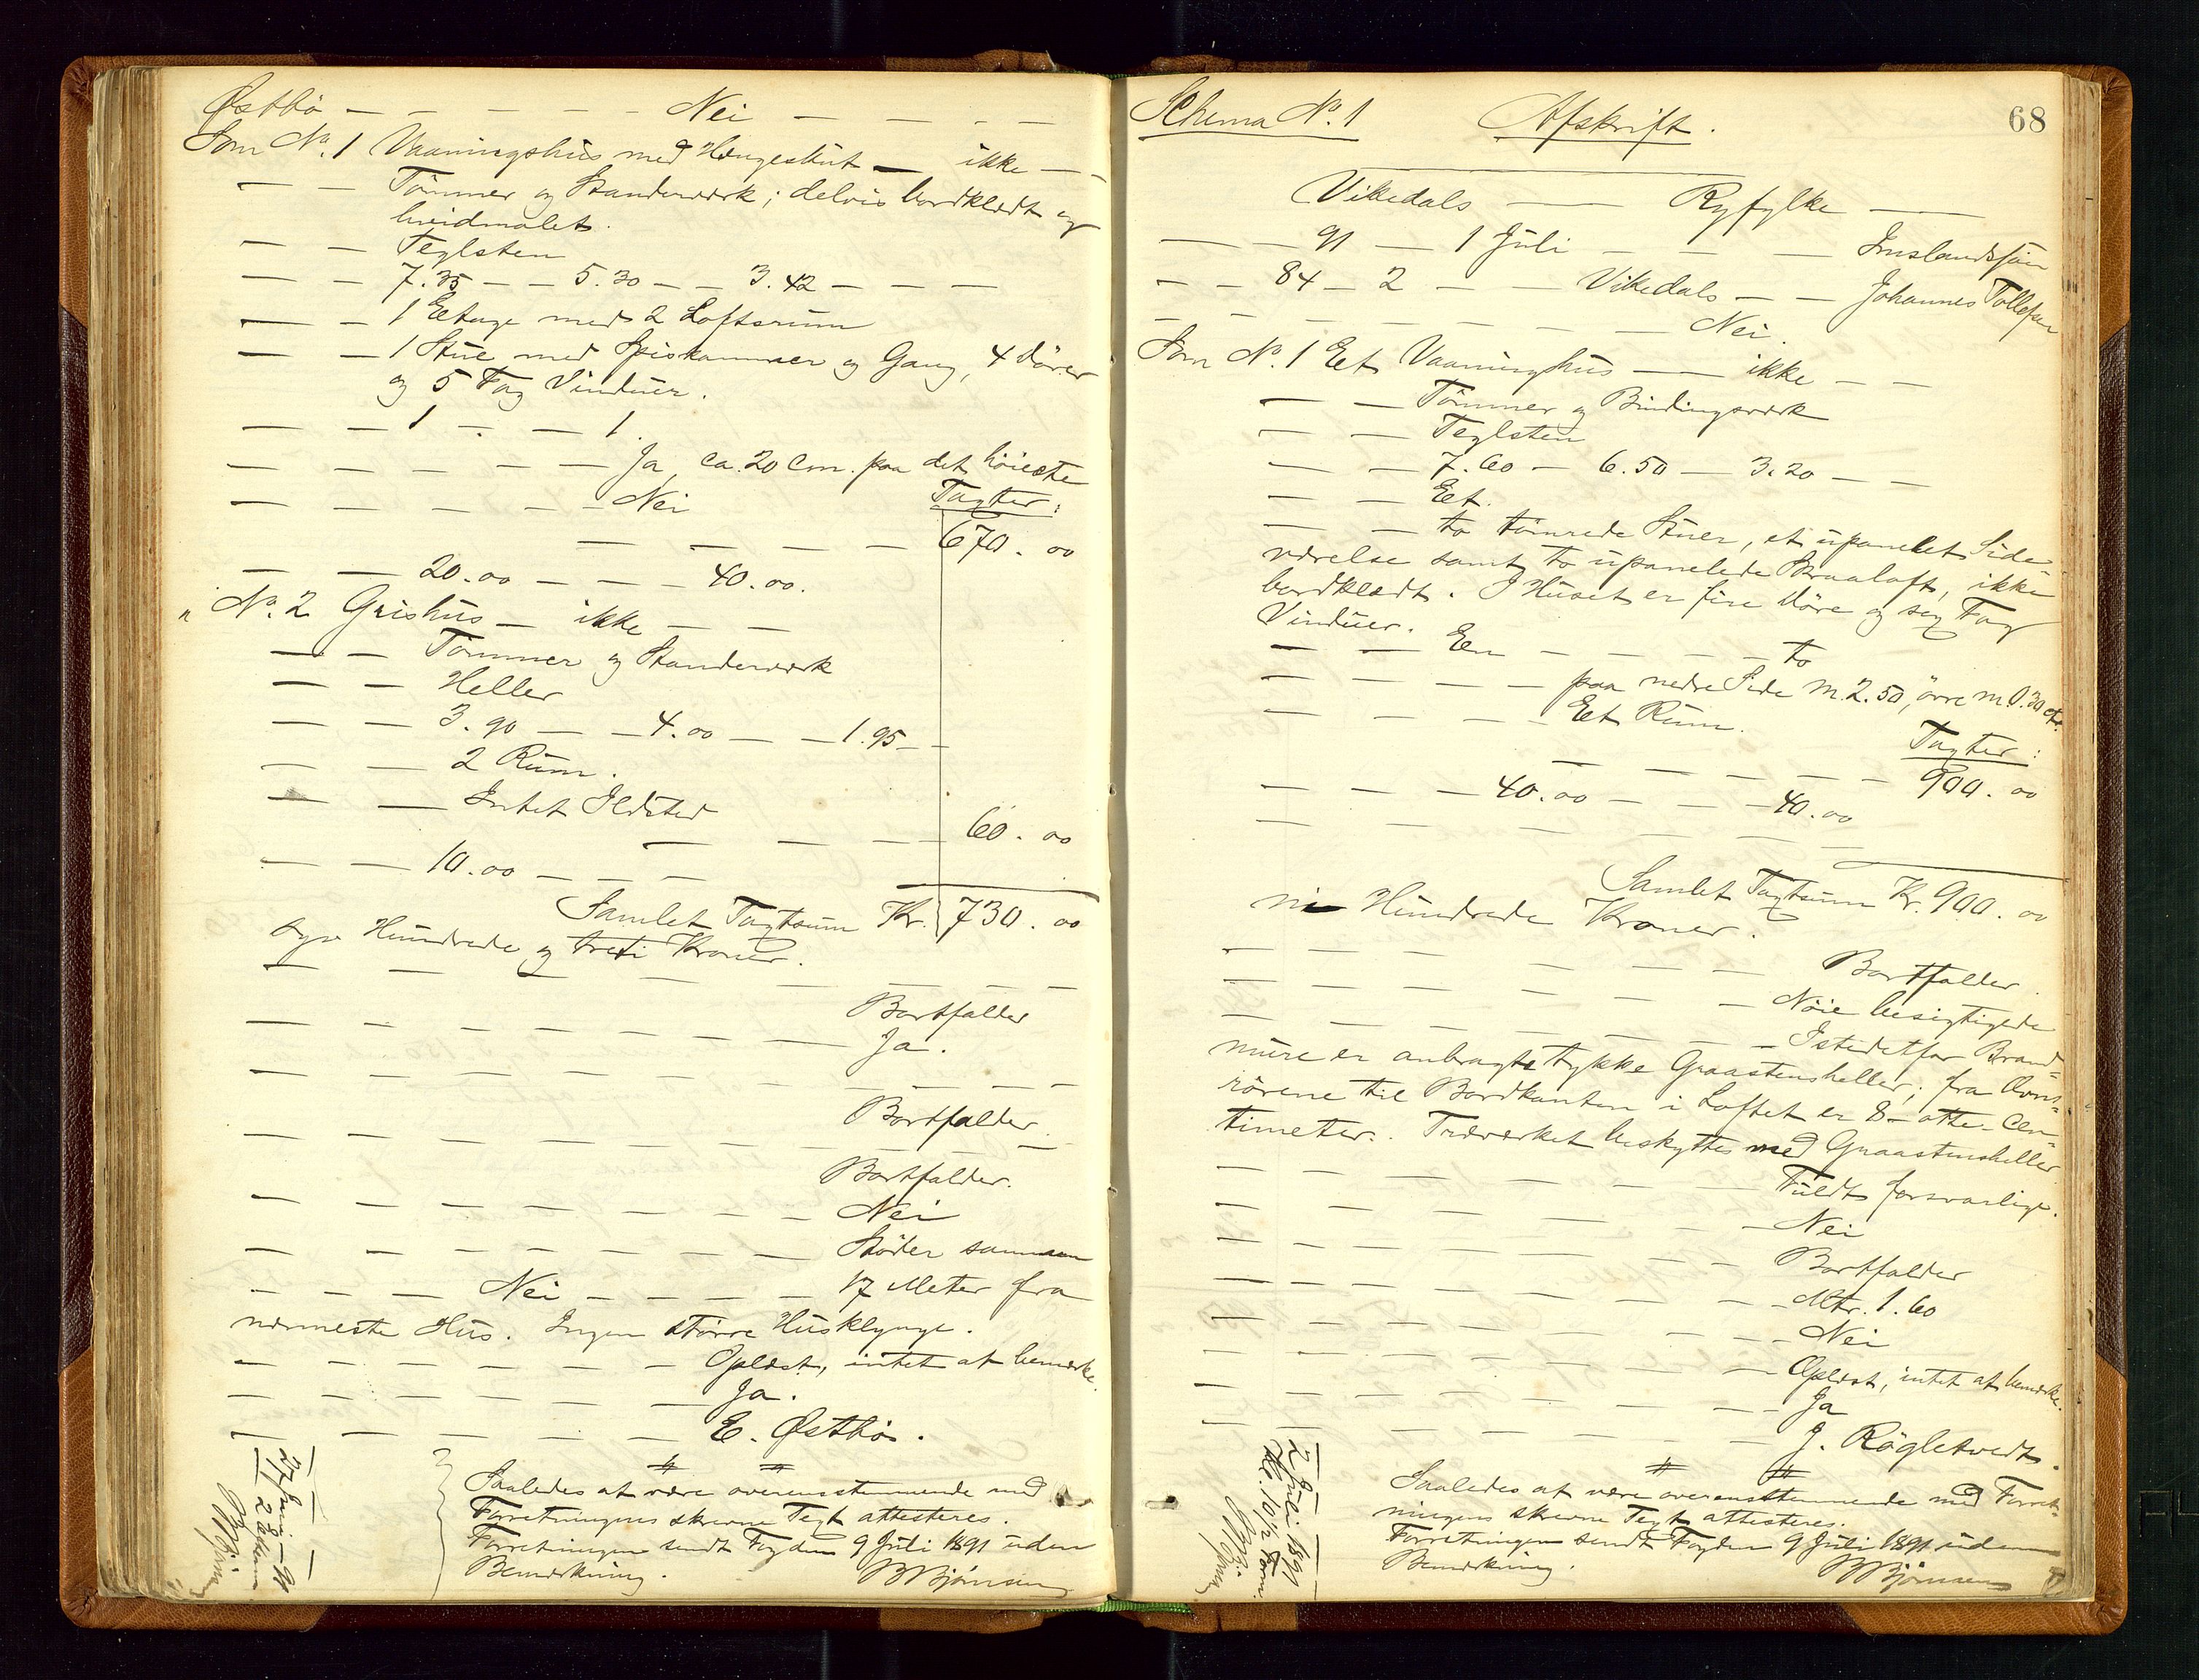 Østbø — — — — — Nei — — — —
Som No. 1 Vaaningshus med Hængeskut — ikke — —
— — Tömmer og Standerværk; delvis bordklædt og
hvidmalet.
— — Teglsten
— — 7.35 — — 5.30 — — 3.42 — — —
— — 1 Etage med 2 Loftsrum
— — 1 Stue med Spiskammer og Gang, 4 Dörer
og 5 Fag Vinduer.
— — 1 — — 1.
— — — — — — Ja, ca. 20 Cm. paa det höieste
— — — — — Nei Taxter:
— — — — 670.00
— — 20.00 — — — 40.00.
" No. 2 Grishus — ikke — —
— — Tömmer og Standerværk
— — Heller
— — 3.90 — — 4.00 — — 1.95 — —
— — 2 Rum.
— — Intet Ildsted
— — — — 60.00
— — 10.00 — — —
Samlet Taxtsum Kr. 730.00
syv Hundrede og treti Kroner.
— — — — — — — —
Bortfalder
— — — — — — Ja.
— — — — — — — —
Bortfalder
— — — — — — — —
Bortfalder.
— — — — — — Nei
— — — — — — Stöder sammen
— — — — Nei — — — — 17 Meter fra
nærmeste Hus. Ingen större Husklynge.
— — — — — — Oplæst, intet at bemærke.
— — — — — — Ja.
— — — — — E. Østbø.
27 Juni 91
Saaledes at være overensstemmende med
Forretningens skrevne Text attesteres.
Forretningen sendt Fogden 9 Juli 1891 uden
Bemærkning. BBjörnsen
Schema No. 1 Afskrift. 68
Vikedals — Ryfylke —
— — 91 — 1 Juli — — — Imslandsjöen
— — 84 — 2 — — Vikedals — — Johannes Tollefsen
— — — — — — — Nei.
Som No. 1 Eet Vaaninghus — ikke — —
— — Tömmer og Bindingsværk
— — Teglsten
— — 7.60 — 6.50 — 3.20 — —
— — Eet.
— — to tömrede Stuer, et upanelet Side-
værelse samt to upanelede Braaloft, ikke
bordklædt. I Huset er fire Döre og sex Fag
Vinduer.
— — Een — — — — to
— — — — paa nedre Side m. 2.50, övre m. 0.30 ctr.
— — — — Eet Rum.
Taxter:
— — — — — 900.00
— — — 40.00 — — — 40.00
— — — — — — —
Samlet Taxtsum Kr. 900.00
ni Hundrede Kroner.
— — — — — — Bortfalder
— — — — — — Nöie besigtigede
— — — — — — Istedetfor Brand-
mure er anbragte tykke Graastensheller; fra Ovns-
rörene til Bordkanten i Loftet er 8 - otte - Cen-
timeter. Træværket beskyttes med Graastensheller
— — — — — — Fuldt forsvarlige.
— — — — — — Nei
— — — — — — Bortfalder
— — — — — — Mtr. 1.60
— — — — — — Nei
— — — — — — Oplæst, intet at bemærke.
— — — — — — Ja
— — — — — — J. Rögletvedt.
2 Juli 1891
Kl. 10½ Form.
Saaledes at være overensstemmende med Forret-
ningens skrevne Text attesteres.
Forretningen sendt Fogden 9 Juli 1891 uden
Bemærkning. BBjörnsen